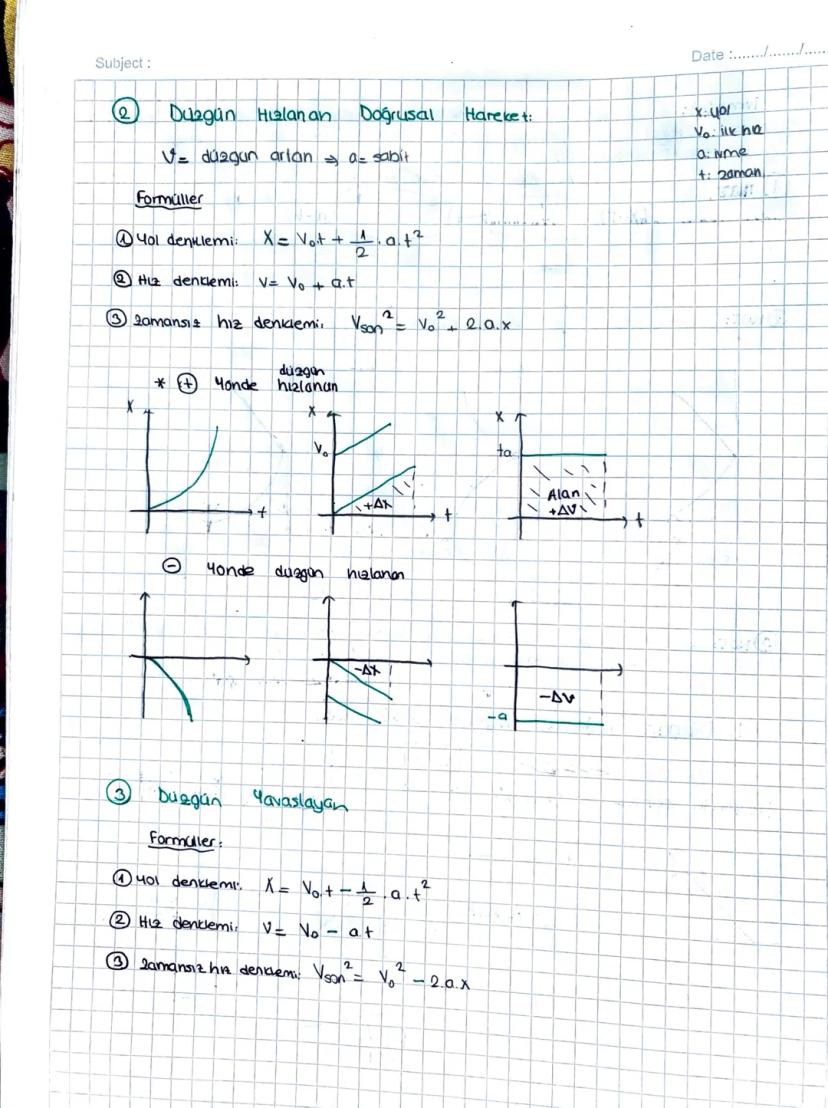 Subject :
Date :......./......./......
② Düzgün Hızlanan Doğrusal Hareket:
x: yol
V₀: ilk hız
a: ivme
t: zaman
V= düzgün artan ⇒ a= sabit
Formüller
① Yol denklemi: X= V₀.t + 1/2 . a.t²
② Hız denklemi: V= V₀ + a.t
③ Zamansız hız denklemi: Vson² = V₀² + 2.a.x
* (+) Yönde düzgün hızlanan
X
t
X
V₀
+Δx
t
X
+a
Alan
+ΔV
t
(-) Yönde düzgün hızlanan
-Δx
-ΔV
-a
③ Düzgün Yavaslayan
Formüller:
① Yol denklemi: X= V₀.t - 1/2 . a.t²
② Hız denklemi: V= V₀ - at
③ Zamansız hız denklemi: Vson² = V₀² - 2.a.x